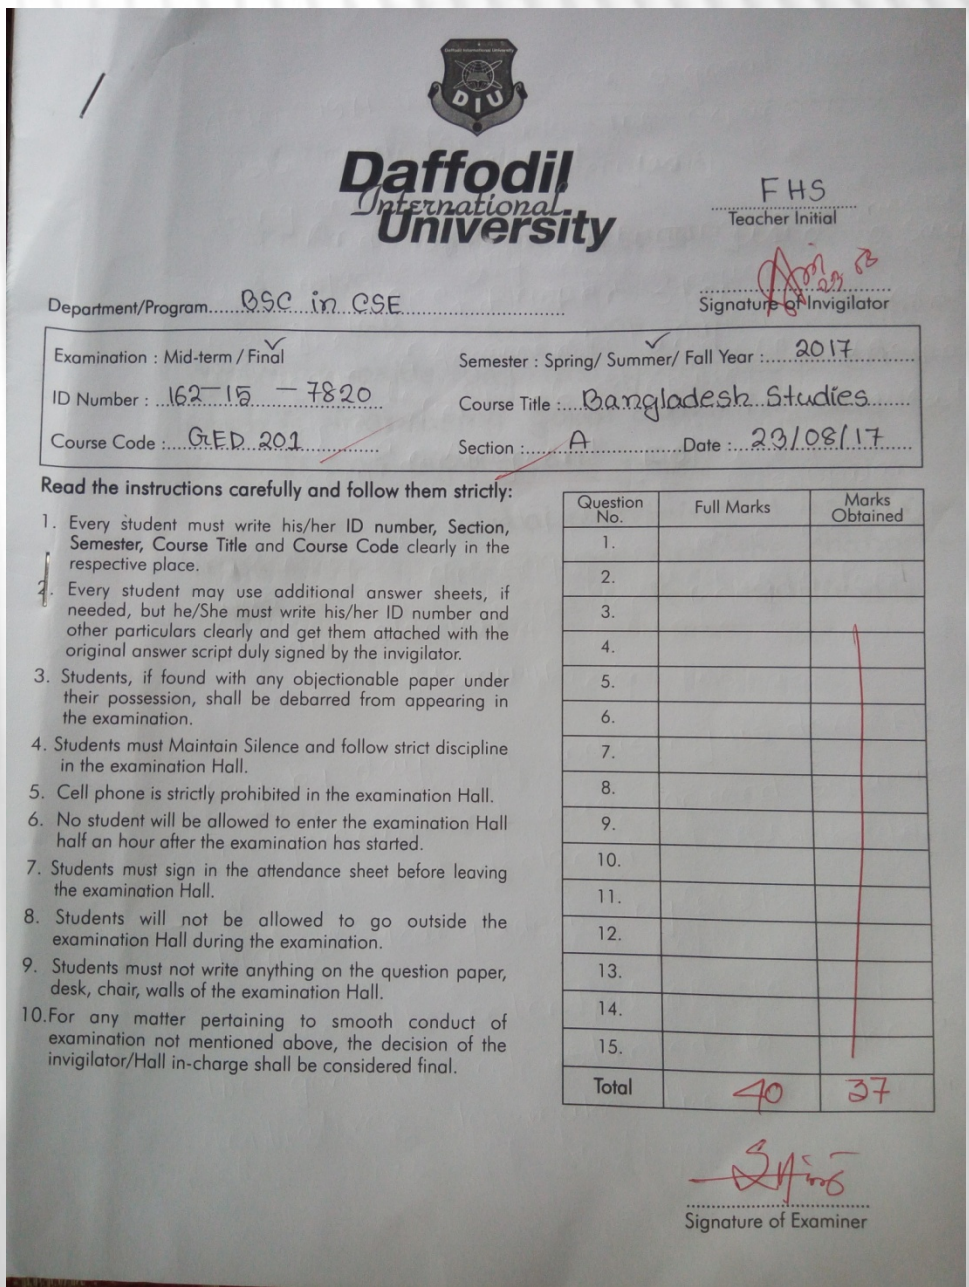 Daffodil International University
DIU
Daffodil
International
University
FHS
Teacher Initial
Department/Program......BSC in CSE
Signature of Invigilator
Examination : Mid-term / Final
Semester : Spring/ Summer/ Fall Year :....2017
ID Number : 162-15 - 7820
Course Title :...Bangladesh Studies
Course Code :....GED 201
Section :......A......Date :...23/08/17
Read the instructions carefully and follow them strictly:
1. Every student must write his/her ID number, Section,
Semester, Course Title and Course Code clearly in the
respective place.
2. Every student may use additional answer sheets, if
needed, but he/She must write his/her ID number and
other particulars clearly and get them attached with the
original answer script duly signed by the invigilator.
3. Students, if found with any objectionable paper under
their possession, shall be debarred from appearing in
the examination.
4. Students must Maintain Silence and follow strict discipline
in the examination Hall.
5. Cell phone is strictly prohibited in the examination Hall.
6. No student will be allowed to enter the examination Hall
half an hour after the examination has started.
7. Students must sign in the attendance sheet before leaving
the examination Hall.
8. Students will not be allowed to go outside the
examination Hall during the examination.
9. Students must not write anything on the question paper,
desk, chair, walls of the examination Hall.
10.For any matter pertaining to smooth conduct of
examination not mentioned above, the decision of the
invigilator/Hall in-charge shall be considered final.
Question No. Full Marks Marks Obtained
1.
2.
3.
4.
5.
6.
7.
8.
9.
10.
11.
12.
13.
14.
15.
Total 40 37
Signature of Examiner